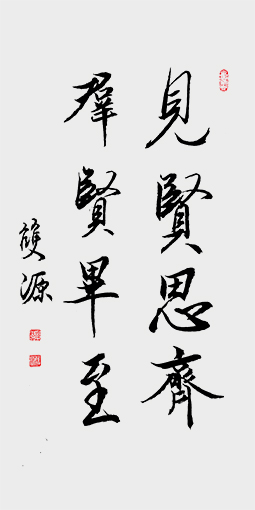 見賢思齊
羣賢畢至
雙源